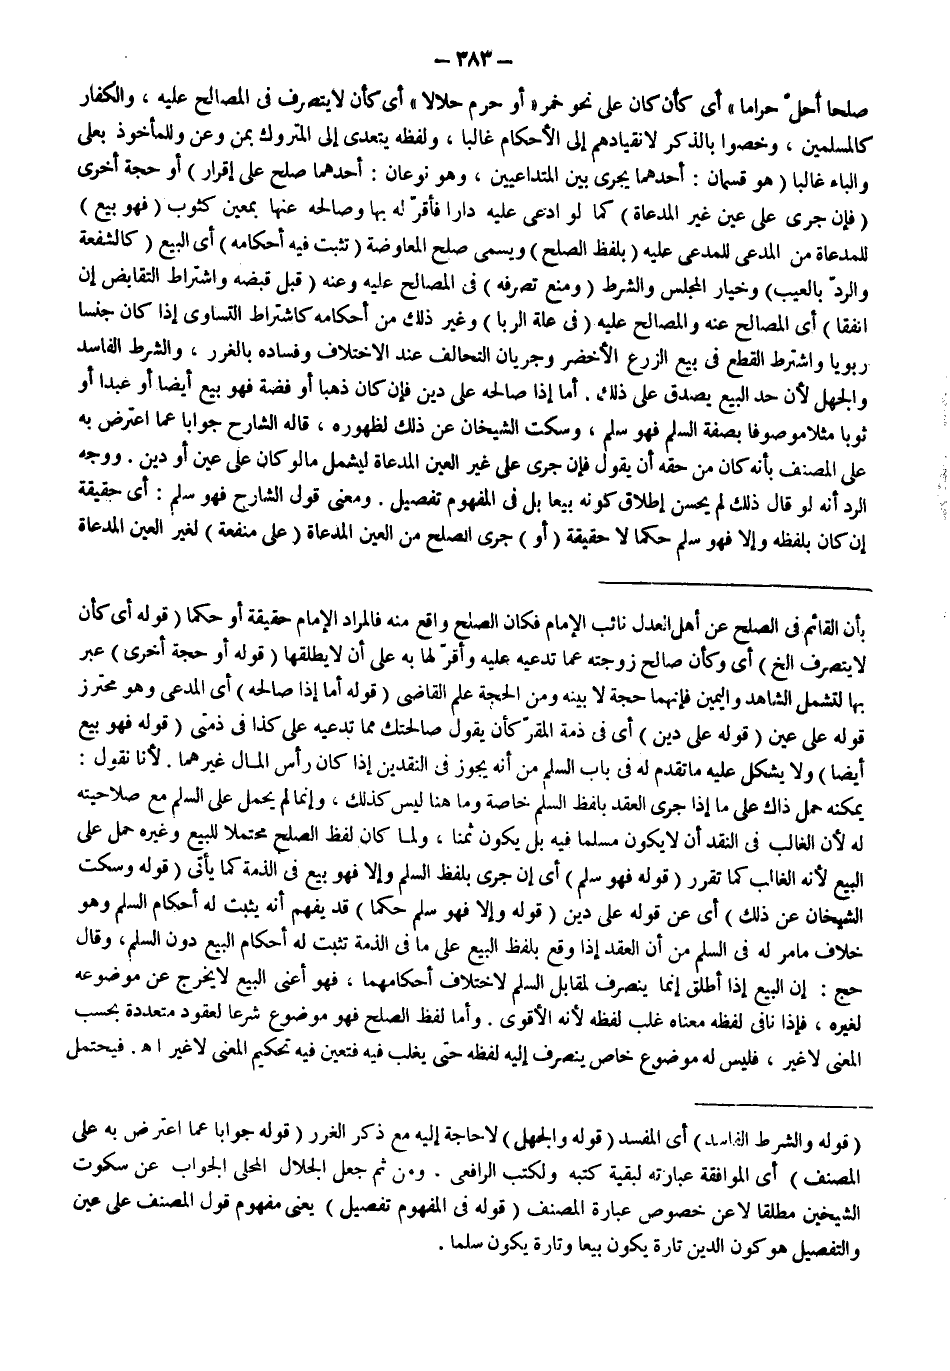 - ٣٨٣ -
صلحا أحلّ حراما» أى كأن كان على نحو خمر «أو حرم حلالا» أى كأن لايتصرف فى المصالح عليه ، والكفار
كالمسلمين ، وخصوا بالذكر لانقيادهم إلى الأحكام غالبا ، ولفظه يتعدى إلى المتروك بمن وعن وللمأخوذ بعلى
والباء غالبا ( هو قسمان : أحدهما يجرى بين المتداعيين ، وهو نوعان : أحدهما صلح على إقرار ) أو حجة أخرى
( فإن جرى على عين غير المدعاة ) كما لو ادعى عليه دارا فأقرّ له بها وصالحه عنها بمعين كثوب ( فهو بيع )
للمدعاة من المدعى للمدعى عليه ( بلفظ الصلح ) ويسمى صلح المعاوضة ( تثبت فيه أحكامه ) أى البيع ( كالشفعة
والردّ بالعيب ) وخيار المجلس والشرط ( ومنع تصرفه ) فى المصالح عليه وعنه ( قبل قبضه واشتراط التقابض إن
اتفقا ) أى المصالح عنه والمصالح عليه ( فى علة الربا ) وغير ذلك من أحكامه كاشتراط التساوى إذا كان جنسا
ربويا واشترط القطع فى بيع الزرع الأخضر وجريان التحالف عند الاختلاف وفساده بالغرر ، والشرط الفاسد
والجهل لأن حد البيع يصدق على ذلك . أما إذا صالحه على دين فإن كان ذهبا أو فضة فهو بيع أيضا أو عبدا أو
ثوبا مثلا موصوفا بصفة السلم فهو سلم ، وسكت الشيخان عن ذلك لظهوره ، قاله الشارح جوابا عما اعترض به
على المصنف بأنه كان من حقه أن يقول فإن جرى على غير العين المدعاة ليشمل مالو كان على عين أو دين . ووجه
الرد أنه لو قال ذلك لم يحسن إطلاق كونه بيعا بل فى المفهوم تفصيل . ومعنى قول الشارح فهو سلم : أى حقيقة
إن كان بلفظه وإلا فهو سلم حكما لا حقيقة ( أو ) جرى الصلح من العين المدعاة ( على منفعة ) لغير العين المدعاة
بأن القائم فى الصلح عن أهل العدل نائب الإمام فكان الصلح واقع منه فالمراد الإمام حقيقة أو حكما ( قوله أى كأن
لايتصرف الخ ) أى وكأن صالح زوجته عما تدعيه عليه وأقرّ لها به على أن لايطلقها ( قوله أو حجة أخرى ) عبر
بها لتشمل الشاهد واليمين فإنهما حجة لا بينه ومن الحجة علم القاضى ( قوله أما إذا صالحه ) أى المدعى وهو محترز
قوله على عين ( قوله على دين ) أى فى ذمة المقرّ كأن يقول صالحتك مما تدعيه على كذا فى ذمتى ( قوله فهو بيع
أيضا ) ولا يشكل عليه ماتقدم له فى باب السلم من أنه يجوز فى النقدين إذا كان رأس المال غيرهما . لأنا نقول :
يمكنه حمل ذاك على ما إذا جرى العقد بلفظ السلم خاصة وما هنا ليس كذلك ، وإنما لم يحمل على السلم مع صلاحيته
له لأن الغالب فى النقد أن لايكون مسلما فيه بل يكون ثمنا ، ولما كان لفظ الصلح محتملا للبيع وغيره حمل على
البيع لأنه الغالب كما تقرر ( قوله فهو سلم ) أى إن جرى بلفظ السلم وإلا فهو بيع فى الذمة كما يأتى ( قوله وسكت
الشيخان عن ذلك ) أى عن قوله على دين ( قوله وإلا فهو سلم حكما ) قد يفهم أنه يثبت له أحكام السلم وهو
خلاف مامر له فى السلم من أن العقد إذا وقع بلفظ البيع على ما فى الذمة تثبت له أحكام البيع دون السلم ، وقال
حج : إن البيع إذا أطلق إنما ينصرف لمقابل السلم لاختلاف أحكامهما ، فهو أعنى البيع لايخرج عن موضوعه
لغيره ، فإذا نافى لفظه معناه غلب لفظه لأنه الأقوى . وأما لفظ الصلح فهو موضوع شرعا لعقود متعددة بحسب
المعنى لاغير ، فليس له موضوع خاص ينصرف إليه لفظه حتى يغلب فيه فتعين فيه تحكيم المعنى لاغير اه . فيحتمل
( قوله والشرط الفاسد ) أى المفسد ( قوله والجهل ) لاحاجة إليه مع ذكر الغرر ( قوله جوابا عما اعترض به على
المصنف ) أى الموافقة عبارته لبقية كتبه ولكتب الرافعى . ومن ثم جعل الجلال المحلى الجواب عن سكوت
الشيخين مطلقا لاعن خصوص عبارة المصنف ( قوله فى المفهوم تفصيل ) يعنى مفهوم قول المصنف على عين
والتفصيل هو كون الدين تارة يكون بيعا وتارة يكون سلما .